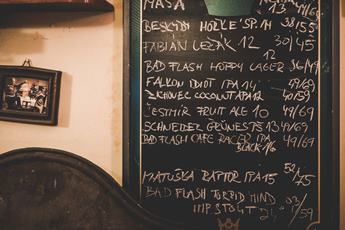 MAŠA 13 /49
BESKYD HOŘKE' SP 14 38/55
FABIÁN LEŽÁK 12 30/45
12
BAD FLASH HOPPY LAGER 36/49
FALKON IDIOT IPA 14 49/69
ZICHOVEC COCONUT APA 12 40/59
ČESTMÍR FRUIT ALE 10 49/69
SCHNEIDER GRÜNES TS 13 49/69
BAD FLASH CAFE RACER IPA 49/69
BLACK 16
MATUŠKA RAPTOR IPA 15
BAD FLASH TORPID MIND
IMP STOUT /59